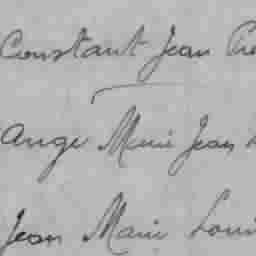 Constant Jean
Ange Marie Jean
Jean Marie Loui